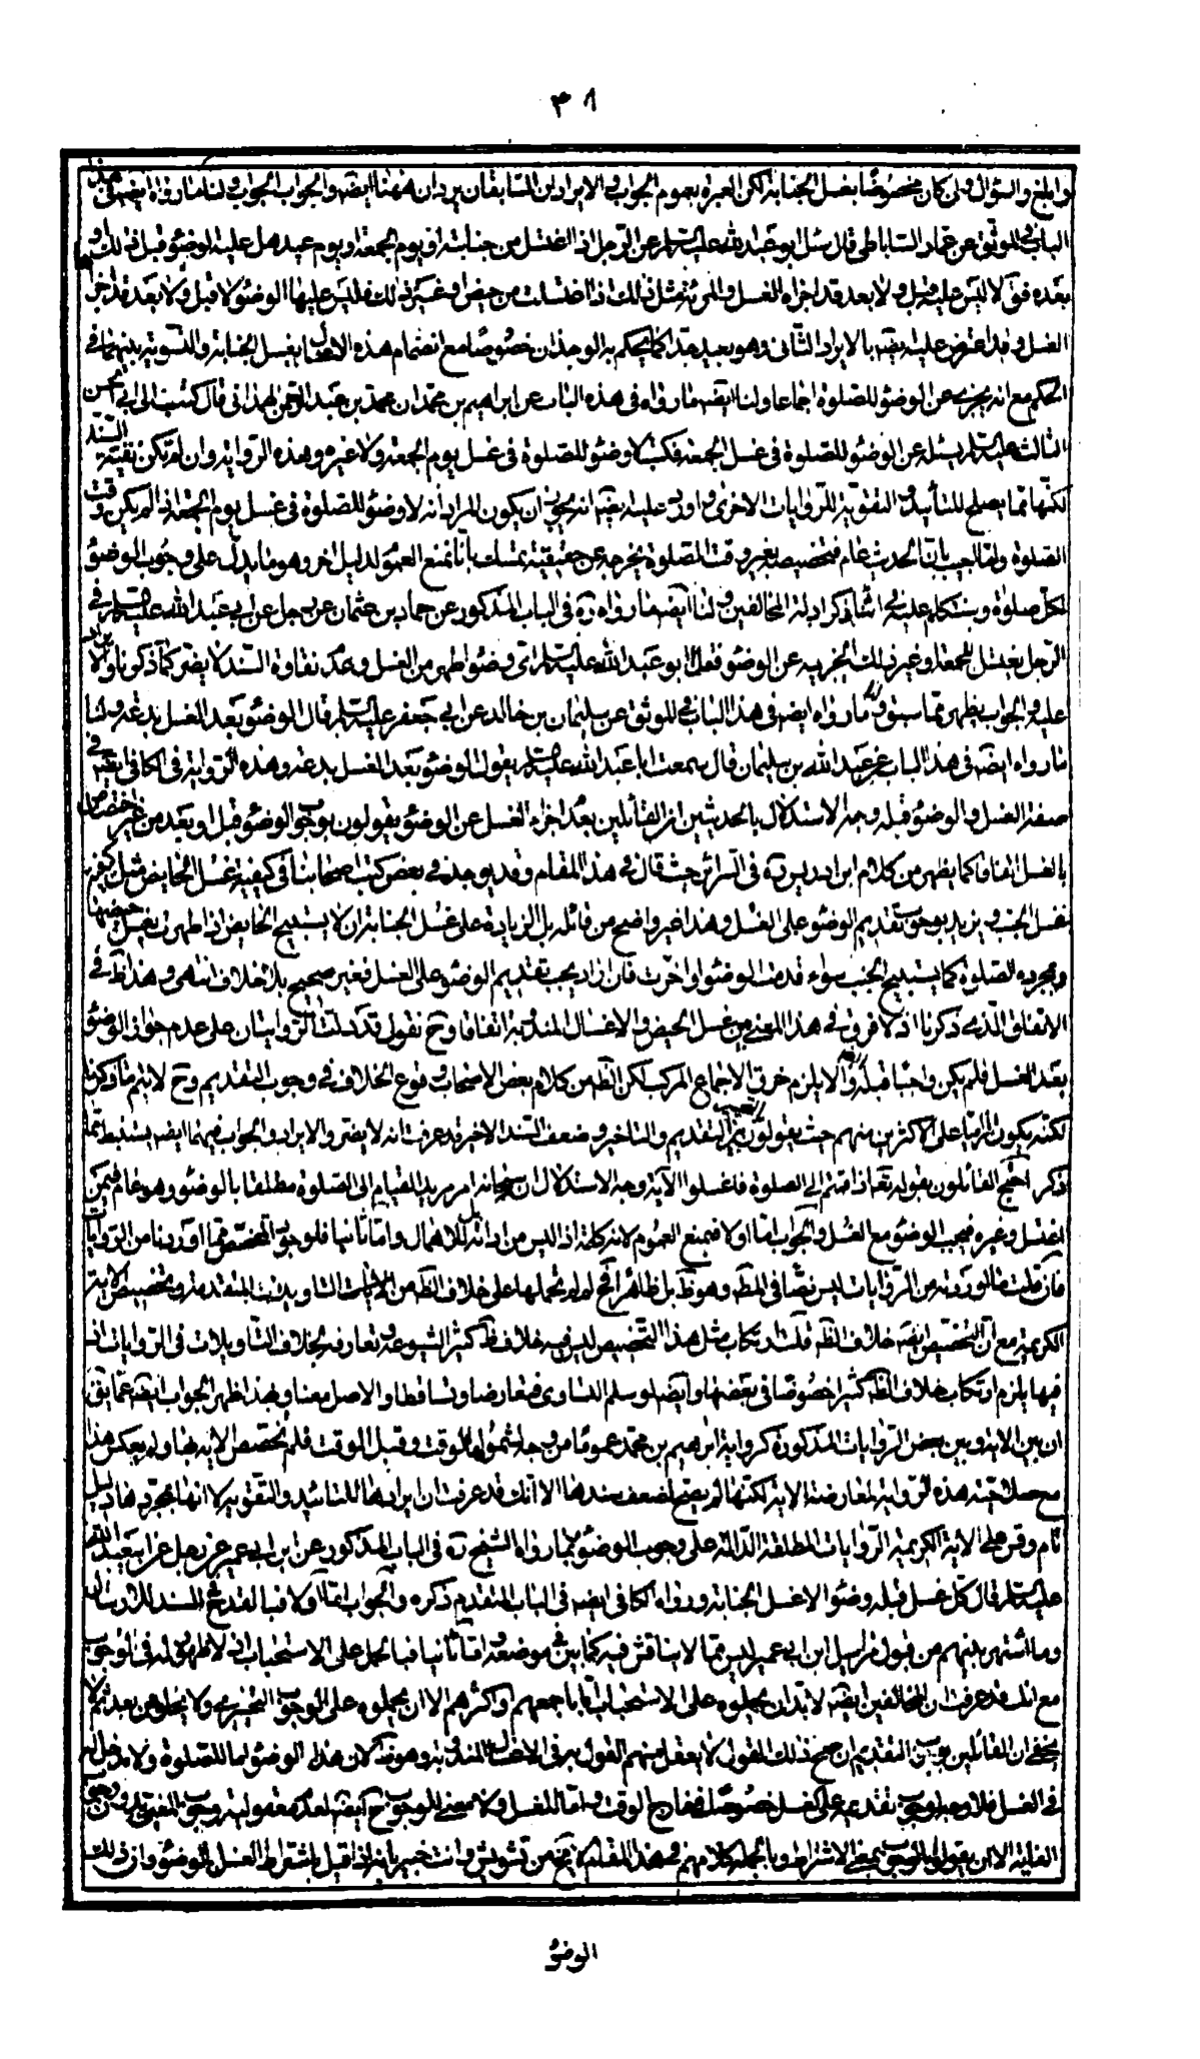 ٣٨
وابلغ والسؤال وان كان مخصوصا بغسل الجنابة لكن العبرة بعموم الجواب والايرادان السابقان يردان ههنا ايضه والجواب الجواب ولنا ما رواه ايضه في هذا
الباب في الموثق عن عمار الساباطي قال سئل ابو عبد الله عليه السلام عن الرجل اذا اغتسل من جنابته او يوم الجمعة او يوم عيد هل عليه الوضوء قبل ذلك او
بعده فق لا ليس عليه قبل ولا بعد قد اجزاه الغسل والمرئة مثل ذلك اذا اغتسلت من حيض او غير ذلك فليس عليها الوضوء لا قبل ولا بعد قد اجزاها
الغسل وقد اعترض عليه بقيه بالايراد الثاني وهو بعيد جدا كما يحكم به الوجدان خصوصا مع انضمام هذه الاغسال بغسل الجنابة والتسوية بينهما في
الحكم مع انه يجزي عن الوضوء للصلوة اجماعا ولنا ايضه ما رواه في هذه الباب عن ابراهيم بن محمد ان محمد بن عبد الرحمن الهمداني قال كتب الى ابي الحسن
الثالث عليه السلام يسئله عن الوضوء للصلوة في غسل الجمعة فكتب لا وضوء للصلوة في غسل يوم الجمعة ولا غيره وهذه الرواية وان لم تكن نقية السند
لكنها مما يصلح للتأييد والتقوية للروايات الاخرى واورد عليه بقيه انه يجوز ان يكون المراد انه لا وضوء للصلوة في غسل يوم الجمعة اذا لم يكن وقت
الصلوة ولما اجيب بان الحديث عام فتخصيصه بغير وقت الصلوة يخرجه عن حقيقته تمسك بانا نمنع العموم لدليل اخر وهو ما يدل على وجوب الوضوء
لكل صلوة وسنتكلم عليه في اثناء ذكر ادلة المخالفين ولنا ايضه ما رواه ره في الباب المذكور عن حماد بن عثمان عن رجل عن ابي عبد الله عليه السلام في
الرجل يغتسل للجمعة او غير ذلك ايجزيه عن الوضوء فقال ابو عبد الله عليه السلام واي وضوء اطهر من الغسل وعدم نقاوة السند لا يضر كما ذكرنا والايراد
عليه والجواب يظهر مما سبق ولنا ما رواه ايضه في هذا الباب في الموثق عن سليمان بن خالد عن ابي جعفر عليه السلام قال الوضوء بعد الغسل بدعة ولنا
ما رواه ايضه في هذا الباب عن عبد الله بن سليمان قال سمعت ابا عبد الله عليه السلام يقول الوضوء بعد الغسل بدعة وهذه الرواية في الكافي ايضه في
صفة الغسل والوضوء قبله وجه الاستدلال بالحديثين ان القائلين بعدم اجزاء الغسل عن الوضوء يقولون بوجوب الوضوء قبل او بعد من غير اختصاص
بالغسل اتفاقا كما يظهر من كلام ابن ادريس ره في السرائر حيث قال في هذا المقام وقد يوجد في بعض كتب اصحابنا في كيفية غسل الحايض مثل كيفية
غسل الجنب ويزيد بوجوب تقديم الوضوء على الغسل وهذا غير واضح من قائله بل الزيادة على غسل الجنابة ان لا يستبيح الحايض اذا طهرت بغسل حيضها
وبمجرده الصلوة كما يستبيح الجنب سواء قدمت الوضوء او اخرت فان اراد يجب تقديم الوضوء على الغسل فغير صحيح بلا خلاف انتهى وهذا ظ في
الاتفاق الذي ذكرنا اذ لا فرق في هذا المعنى بين غسل الحيض والاغسال المندوبة اتفاقا وح نقول قد دلت الروايتان على عدم جواز الوضوء
بعد الغسل فلم يكن واجبا قبله والا يلزم خرق الاجماع المركب لكن الظ من كلام بعض الاصحاب وقوع الخلاف في وجوب التقديم وح لا يتم ما ذكرنا
لكنه يكون الزاميا على الاكثرين منهم حيث يقولون بالتخيير بين التقديم والتاخير وضعف السند الاخير قد عرفت انه لا يضر والايراد والجواب فيهما ايضه يستنبط مما
ذكر احتج القائلون بقوله تعه اذا قمتم الى الصلوة فاغسلوا الآية وجه الاستدلال انه سبحانه امر مريد القيام الى الصلوة مطلقا بالوضوء وهو عام فيمن
اغتسل وغيره فيجب الوضوء مع الغسل والجواب اما اولا فبمنع العموم لان كلمة اذا ليس من اداته بل للاهمال واما ثانيا فلوجود المخصص مما اوردنا من الروايات
فان قلت ما اوردته من الروايات ليس نصا في المط وهو ظ بل ظاهر فح لم لم تحملها على خلاف الظ من التاويلات المتقدمة وتخصيص الاية
الكريمة مع ان التخصيص ايضه خلاف الظ قلت ارتكاب مثل هذا التخصيص ليس فيه خلاف ظ كثير لشيوعه وتعارفه بخلاف التاويلات في الروايات اذ
فيها يلزم ارتكاب خلاف الظ كثيرا خصوصا في بعضها وايضه لو سلم التساوي فتعارضا وتساقطا والاصل معنا وبهذا ظهر الجواب ايضه عما يق
ان بين الاية وبين بعض الروايات المذكورة كرواية ابرهيم بن محمد عموما من وجه لشمولها للوقت وقبل الوقت فلم تخصص الاية بها ولم يعكس هذا
مع صلاحية هذه الرواية لمعارضة الاية لكنها لم تصح لضعف سندها الا انك قد عرفت ان ايرادها للتائيد والتقوية لا انها بمجردها دليل
تام وقس على الاية الكريمة الروايات المطلقة الدالة على وجوب الوضوء بما رواه الشيخ ره في الباب المذكور عن ابن ابي عمير عن رجل عن ابي عبد الله
عليه السلام قال كل غسل قبله وضوء الا غسل الجنابة ورواه الكافي ايضه في الباب المتقدم ذكره والجواب اما اولا فبالقدح في السند للارسال
وما اشتهر بينهم من قبول مراسيل ابن ابي عمير ليس مما لا يناقش فيه كما بين في موضعه واما ثانيا فبالحمل على الاستحباب اذ لا ظهور له في الوجوب
مع انك قد عرفت ان المخالفين ايضه لا بد ان يحملوه على الاستحباب اما باجمعهم او اكثرهم الا ان يحملوه على الوجوب التخييري ولا يخلو من بعد ثم لا
يخفى ان القائلين بوجوب التقديم ان صح ذلك القول لا يعقل منهم القول به في الاغسال المندوبة وهو ظ لان هذا الوضوء اما للصلوة ولا مدخل له
في الغسل فلا وجه لوجوب تقديمه على الغسل خصوصا في خارج الوقت واما للغسل ولا معنى للوجوب ح ايضه لعدم معقولية وجوب المقدمة بدون وجوب
الغاية الا ان يقولوا بالوجوب بمعنى الاشتراط وبالجملة كلامهم في هذا المقام لا يخ من تشويش وانت خبير بانه اذا قيل باشتراط الغسل بالوضوء وان ذلك
الوضوء